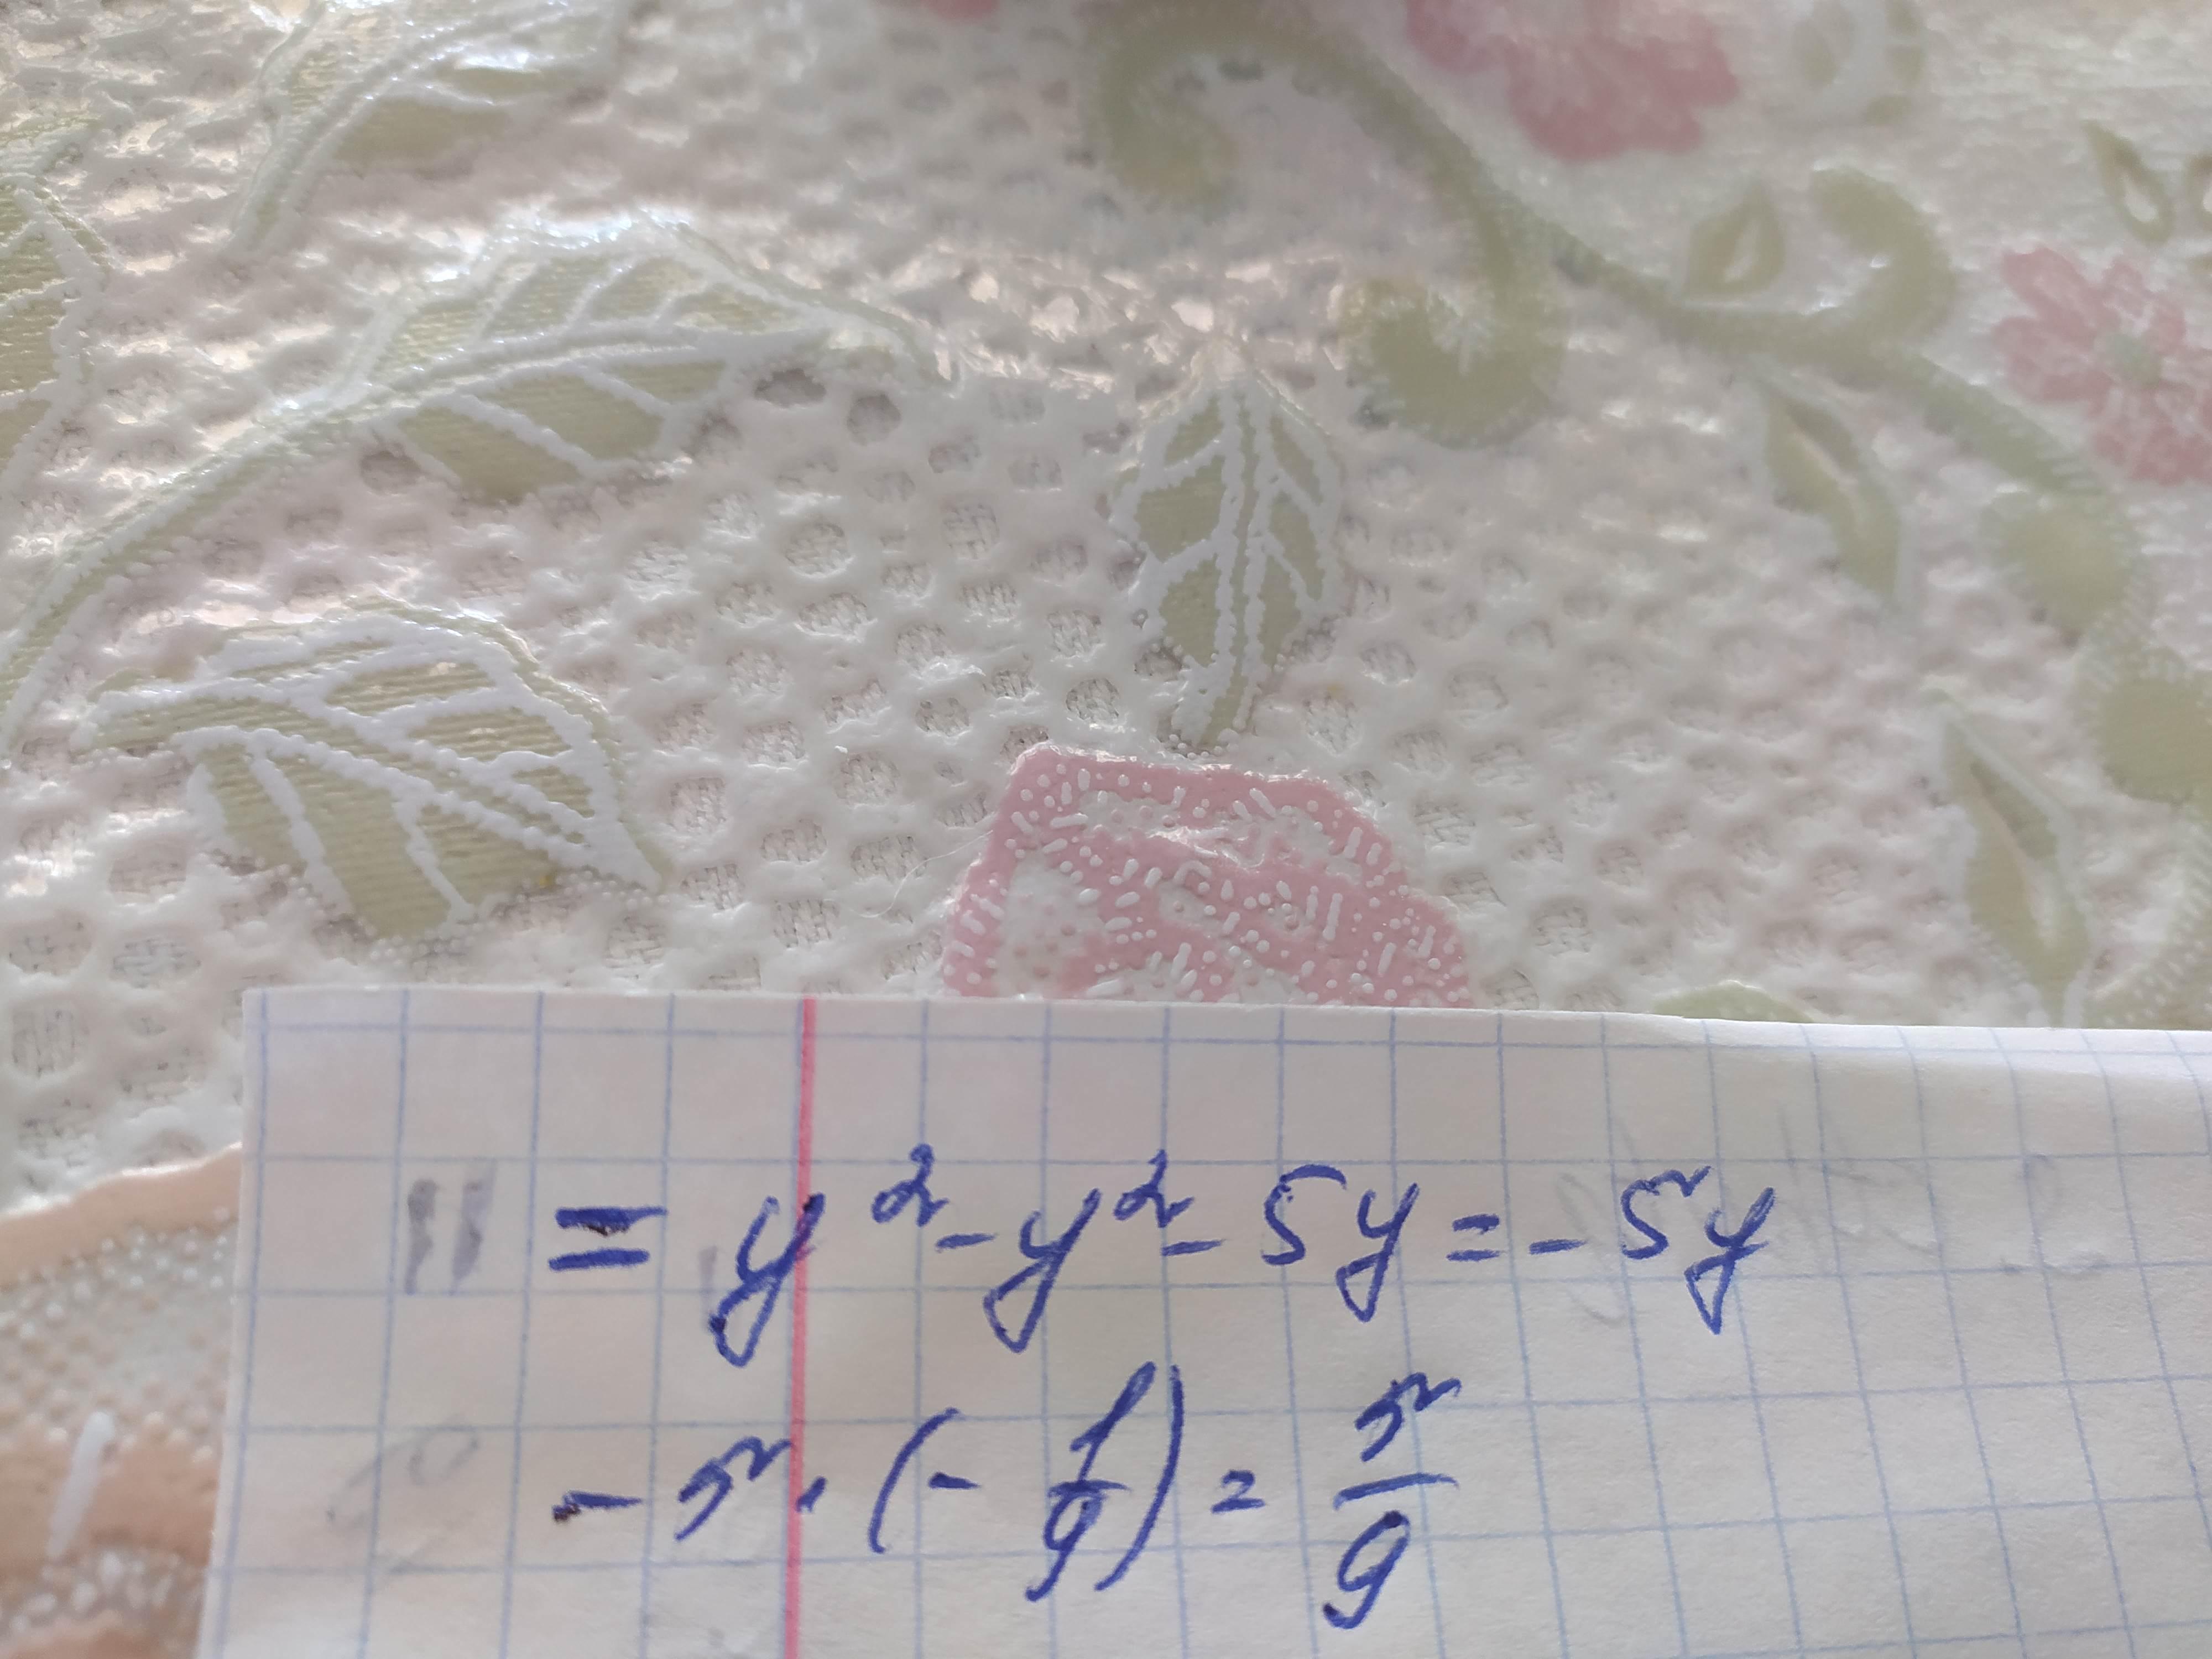 = y² - y² - 5y = - 5y
- 5 · (- 1/9) = 5/9